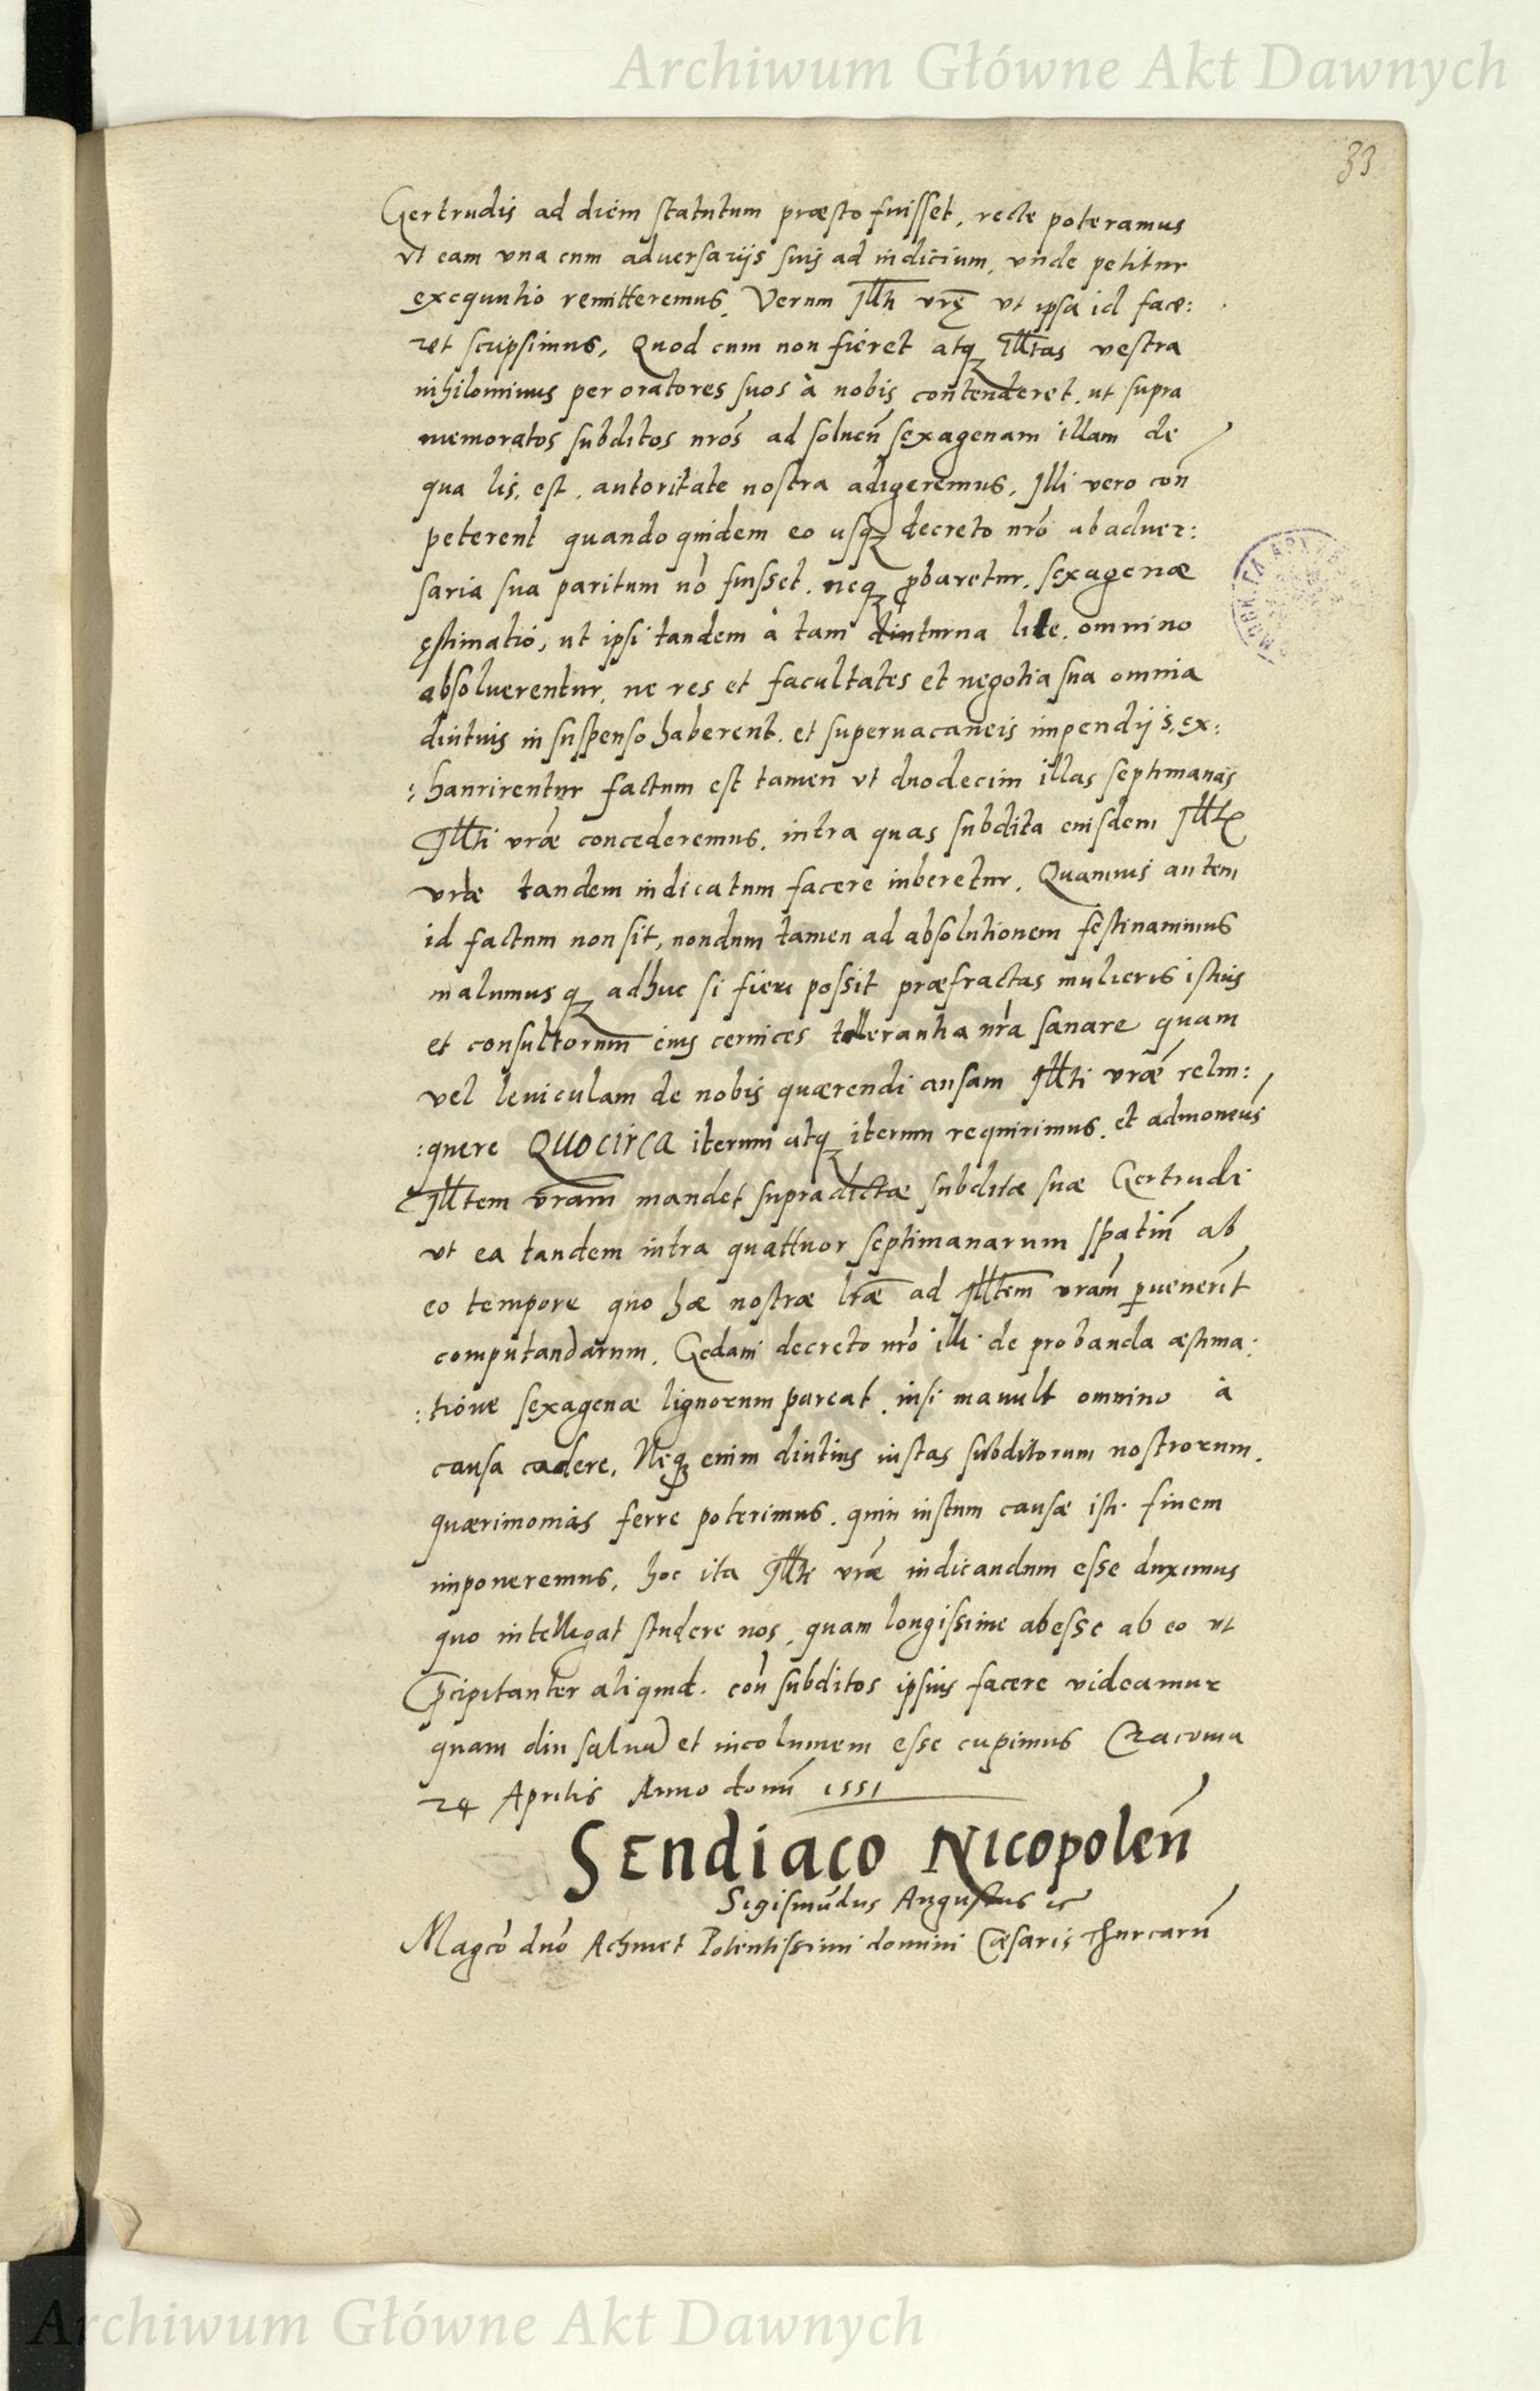 Archiwum Główne Akt Dawnych
33
Gertrudis ad diem statutum præsto fuisset, recte poteramus
vt eam vna cum aduersarijs suis ad iudicium, vnde petitur
exequutio remitteremus. Verum Illti vrę vt ipsa id face:
ret scripsimus, Quod cum non fieret atq Illtas vestra
nihilominus per oratores suos à nobis contenderet, ut supra
memoratos subditos nros ad soluen sexagenam illam de
qua lis est, autoritate nostra adigeremus, Illi vero con
peterent quandoquidem eo usq decreto nro ab aduer:
saria sua paritum nō fuisset, neq pbaretur, sexagenæ
ęstimatio, ut ipsi tandem à tam diuturna lite, omnino
absoluerentur, ne res et facultates et negotia sua omnia
diutius in suspenso haberent, et superuacaneis impendijs, ex:
:haurirentur factum est tamen vt duodecim illas septimanas
Illti vræ concederemus, intra quas subdita eiusdem Illtis
vræ tandem iudicatum facere iuberetur, Quamuis autem
id factum non sit, nondum tamen ad absolutionem festinamus
malumusq adhuc si fieri possit præfractas mulieris istius
et consultorum eius ceruices tolleranția nra sanare quam
vel leuiculam de nobis quærendi ansam Illti vræ relin:
:quere QUOCIRCA iterum atq iterum requirimus, et admonemus
Illtem vram mandet supradictæ subditæ suæ Gertrudi
vt ea tandem intra quattuor septimanarum spatiū ab
eo tempore quo hæ nostræ lræ ad Illtem vram puenerīt
computandarum, Gedani decreto nro illi de probanda æstima:
:tione sexagenæ lignorum pareat, nisi mauult omnino à
causa cadere, Neq enim diutius iustas subditorum nostrorum
quærimonias ferre poterimus, quin iustum causæ isti finem
imponeremus, hoc ita Illti vræ indicandum esse duximus
quo intelligat studere nos, quam longissime abesse ab eo vt
Pcipitanter aliquid con subditos ipsius facere videamur
quam diu saluā et incolumem esse cupimus Cracouia
24 Aprilis Anno domi 1551
SENDIACO NICOPOLEN
Sigismūdus Augustus
Magco dno Achmet Potentissimi domini Cæsaris Thurcarū
Archiwum Główne Akt Dawnych